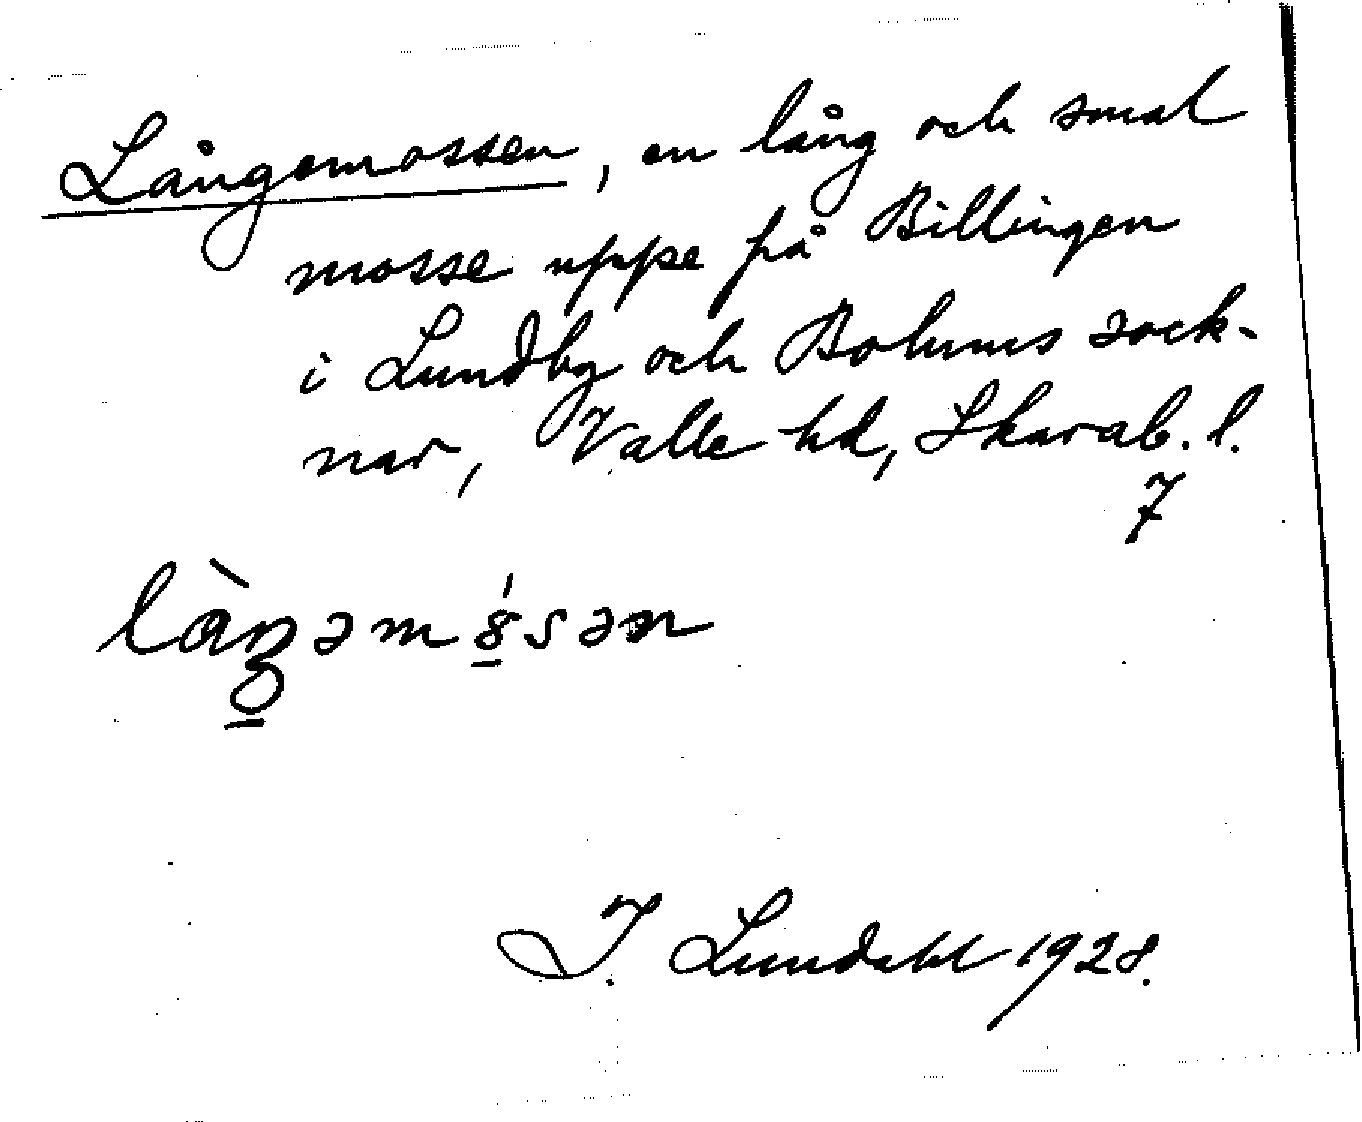 Långemossen, en lång och smal
mosse uppe på Billingen
i Lundby och Bolums sock-
nar, Valle hd, Skarab. l.
7
I. Lundahl 1928.